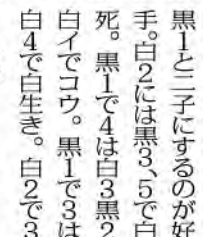 黒1と二子にするのが好
手。白2には黒3、5で白
死。黒1で4は白3黒2
白イでコウ。黒1で3は
白4で白生き。白2で3